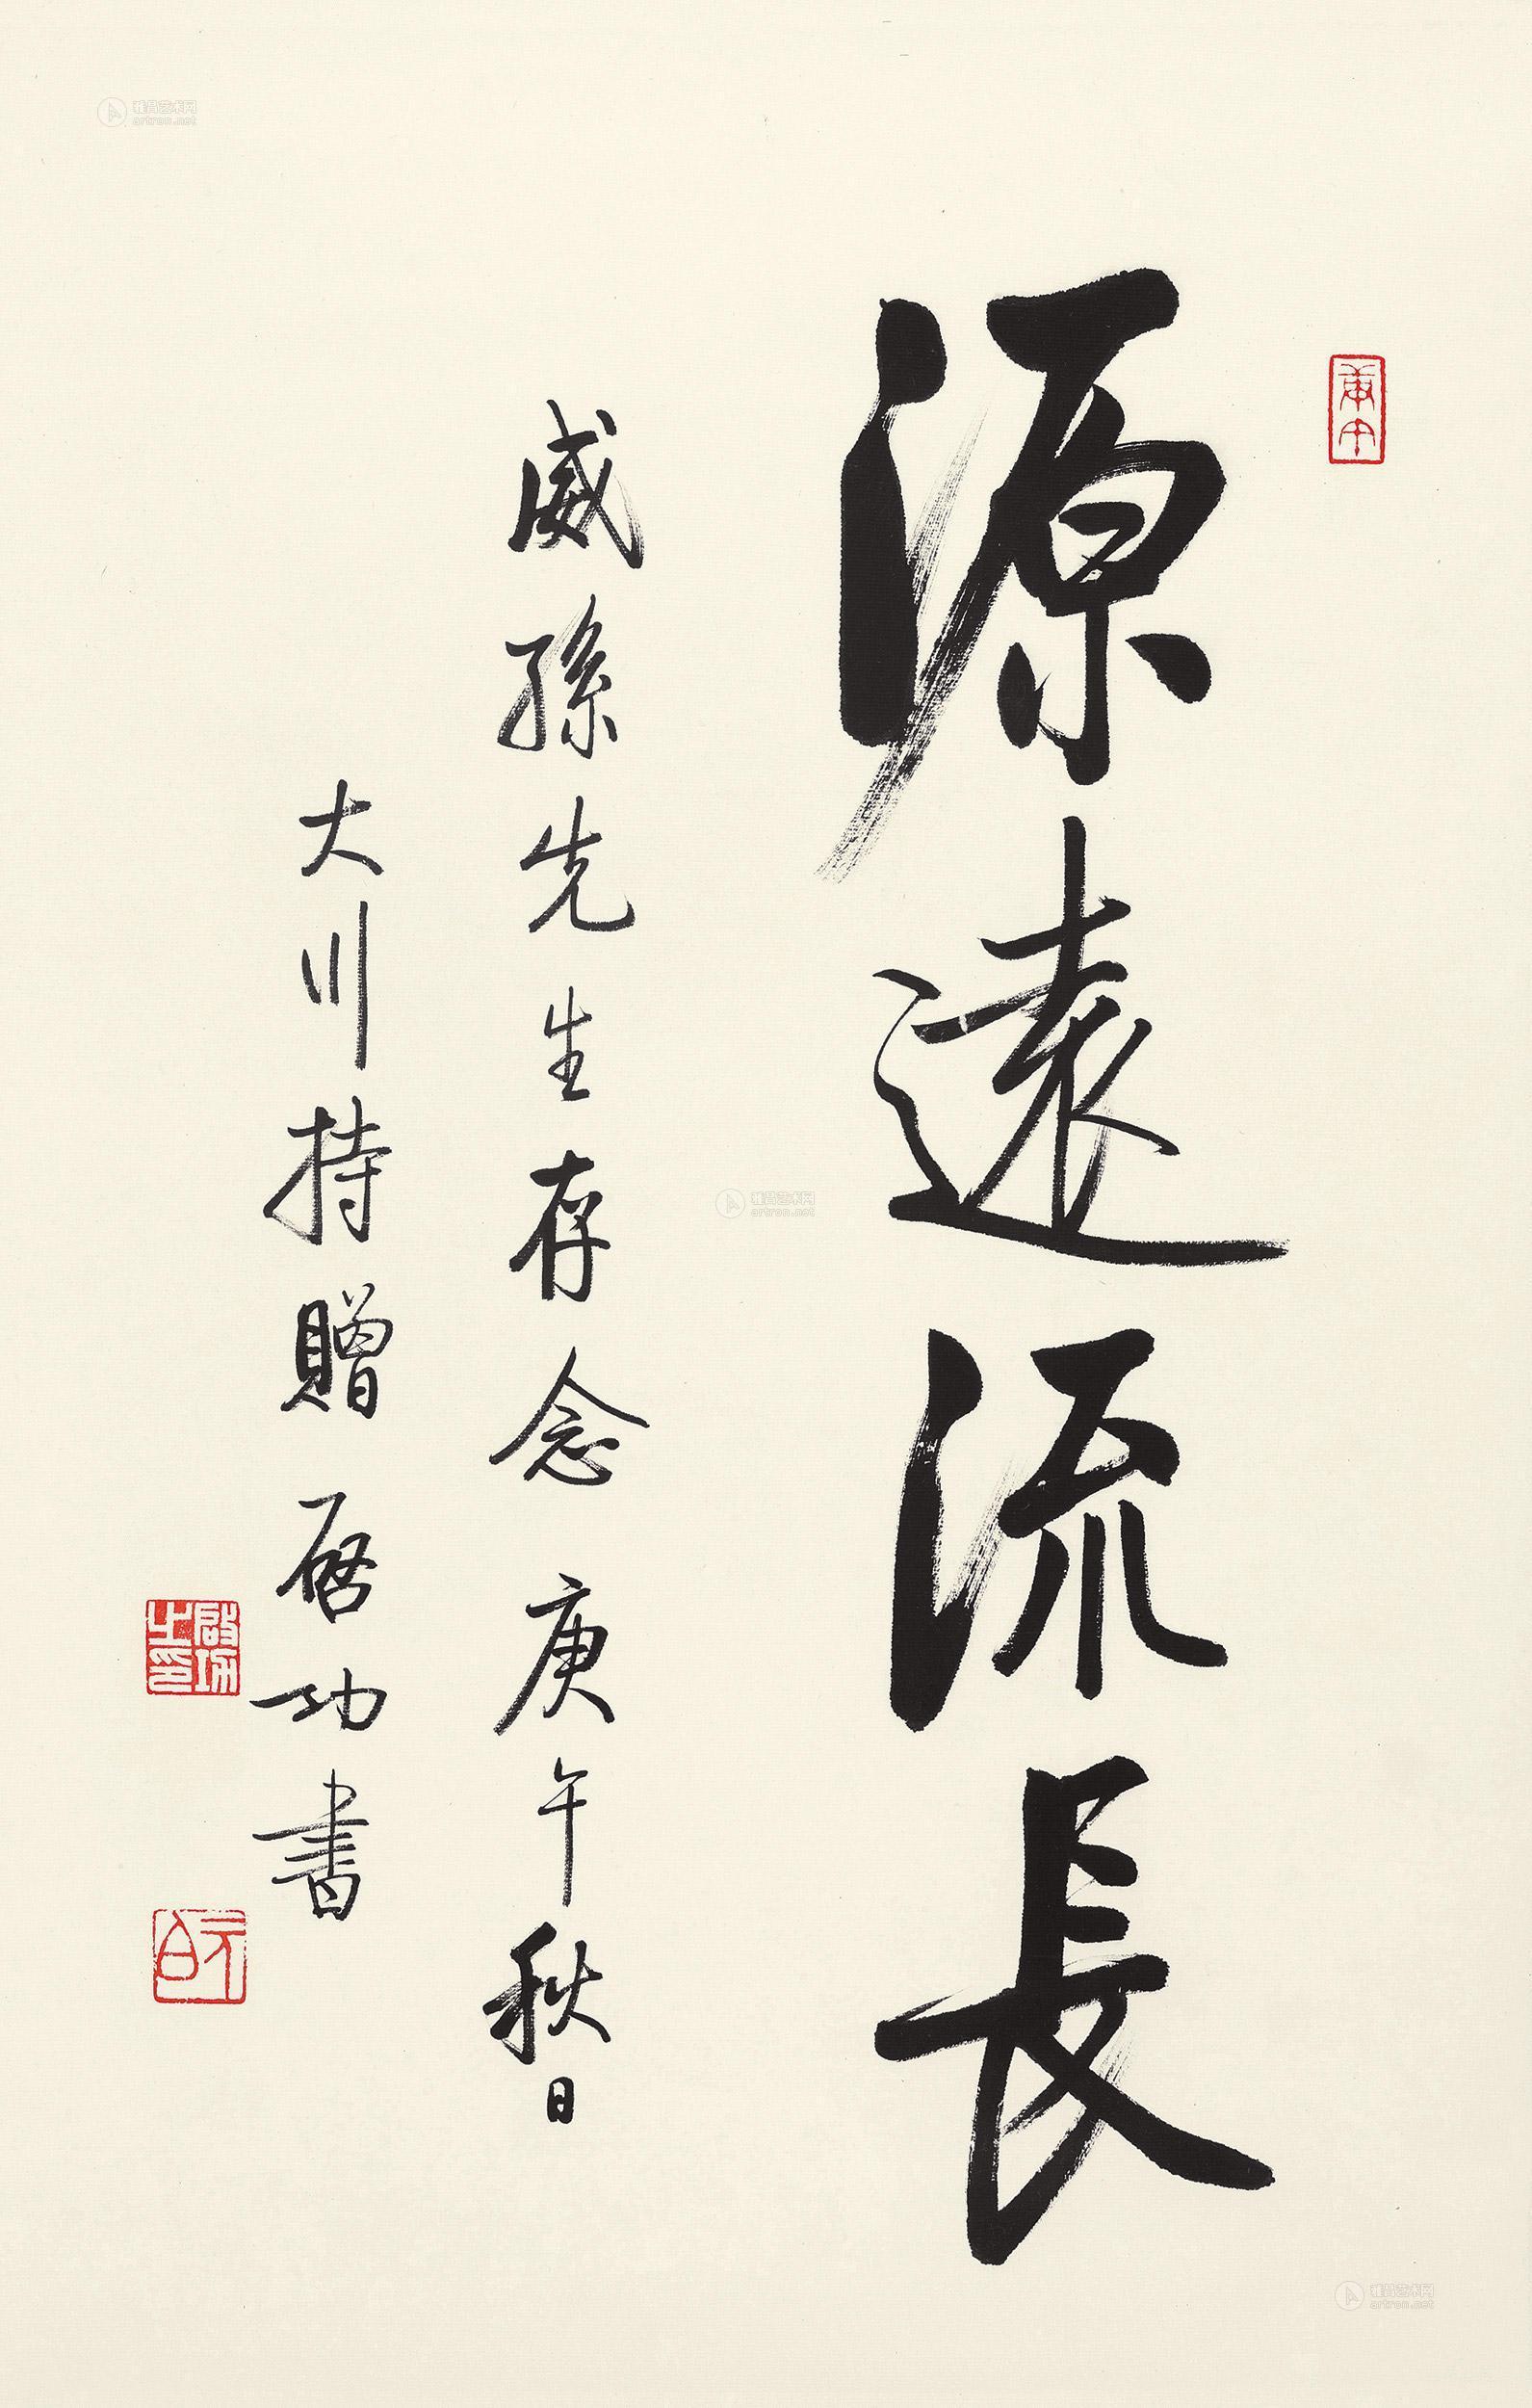 源遠流長
威孫先生存念 庚午秋日
大川持贈 启功書
啟功之印
元白
雅昌艺术网
artron.net
雅昌艺术网
artron.net
雅昌艺术网
artron.net